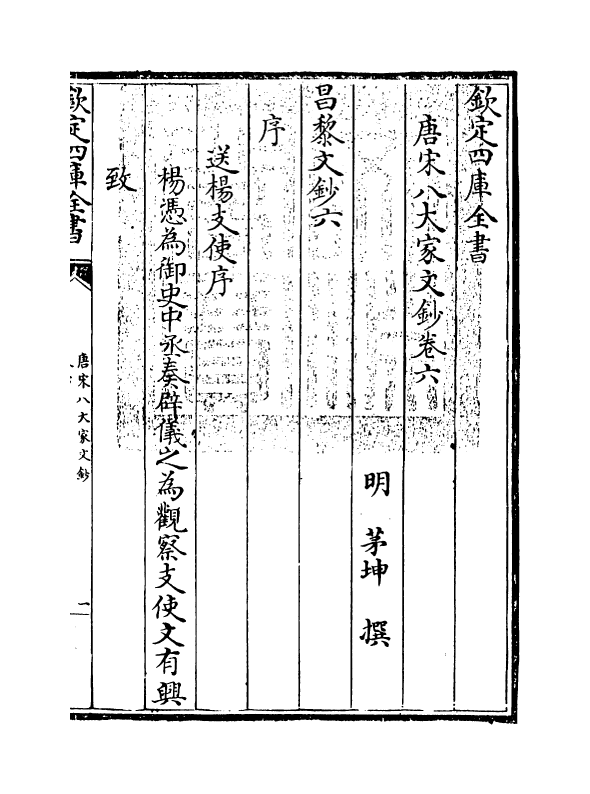 欽定四庫全書
唐宋八大家文鈔卷六
明 茅坤 撰
昌黎文鈔六
序
送楊支使序
楊憑為御史中丞奏辟儀之為觀察支使文有興
致
欽定四庫全書
唐宋八大家文鈔
一